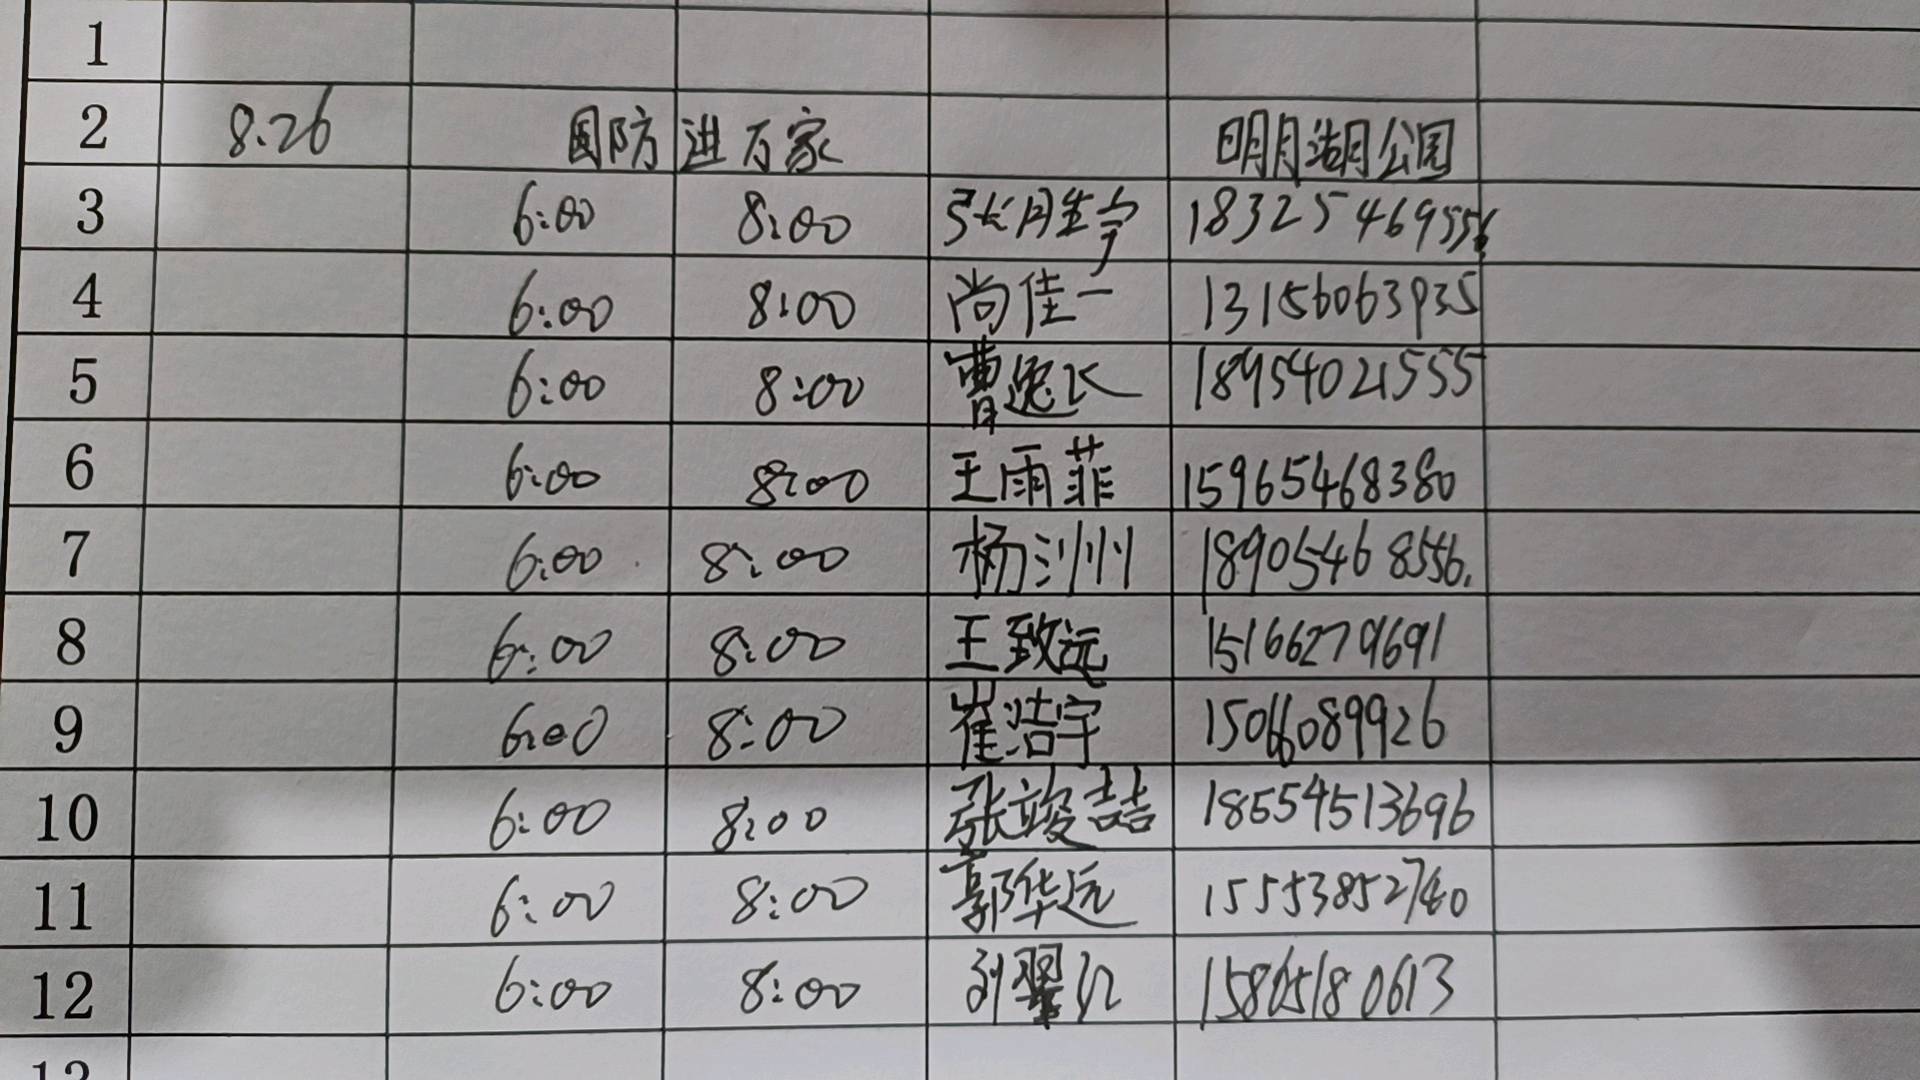 1
2 8.26 国防进万家 明月湖公园
3 6:00 8:00 张胜宇 18325469556
4 6:00 8:00 尚佳一 13156063935
5 6:00 8:00 曹逸飞 18954021555
6 6:00 8:00 王雨菲 15965468380
7 6:00 8:00 杨洲 18905468556
8 6:00 8:00 王致远 15166279691
9 6:00 8:00 崔浩宇 15066089926
10 6:00 8:00 张竣喆 18554513696
11 6:00 8:00 郭华远 15553852740
12 6:00 8:00 刘翠 15865180613